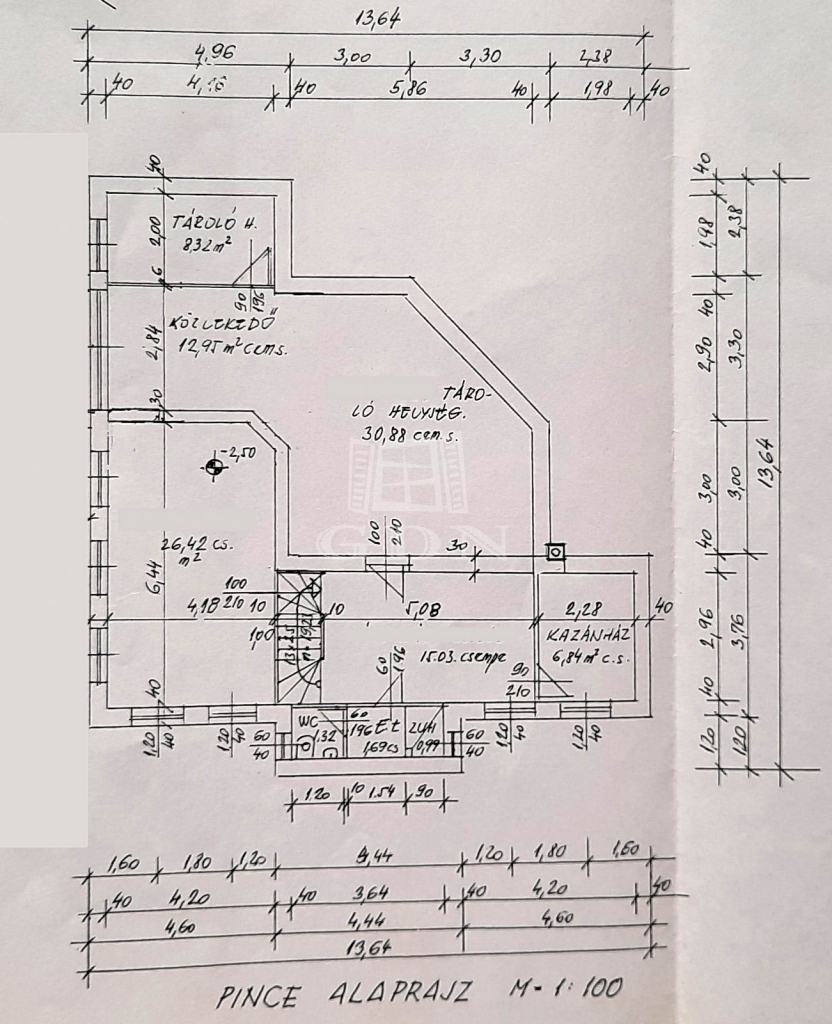 13,64
4,96 3,00 3,30 2,38
40 40 5,86 40 1,98 40
40
TÁROLÓ H.
8,32 m²
2,00
6
90
196
KÖZLEKEDŐ
12,95 m² cem s.
2,84
30
TÁRO-
LÓ HELYSÉG.
30,88 cem. s.
-2,50
GDN
100
210
30
26,42 cs.
m²
6,44
100
210
4,18 10
100
10
5,08
2,28
40
KAZÁNHÁZ
6,84 m² c.s.
15.03. csempe
60
196
90
210
40
WC
1.32
60
196
Et
1,69 cs
0,99
60
40
60
40
1,20
40
1,20
40
1,20
40
1,20
40
1.20 10 1.54 90
40
1,98 2,38
40
2,90 3,30
3,00 3,00
13,64
40
2,96 3,76
40
1,20 1,20
1,60 1,80 1,20 1,20 1,80 1,60
40 4,20 40 3,64 40 4,20 40
4,60 4,44 4,60
13,64
PINCE ALAPRAJZ M-1:100